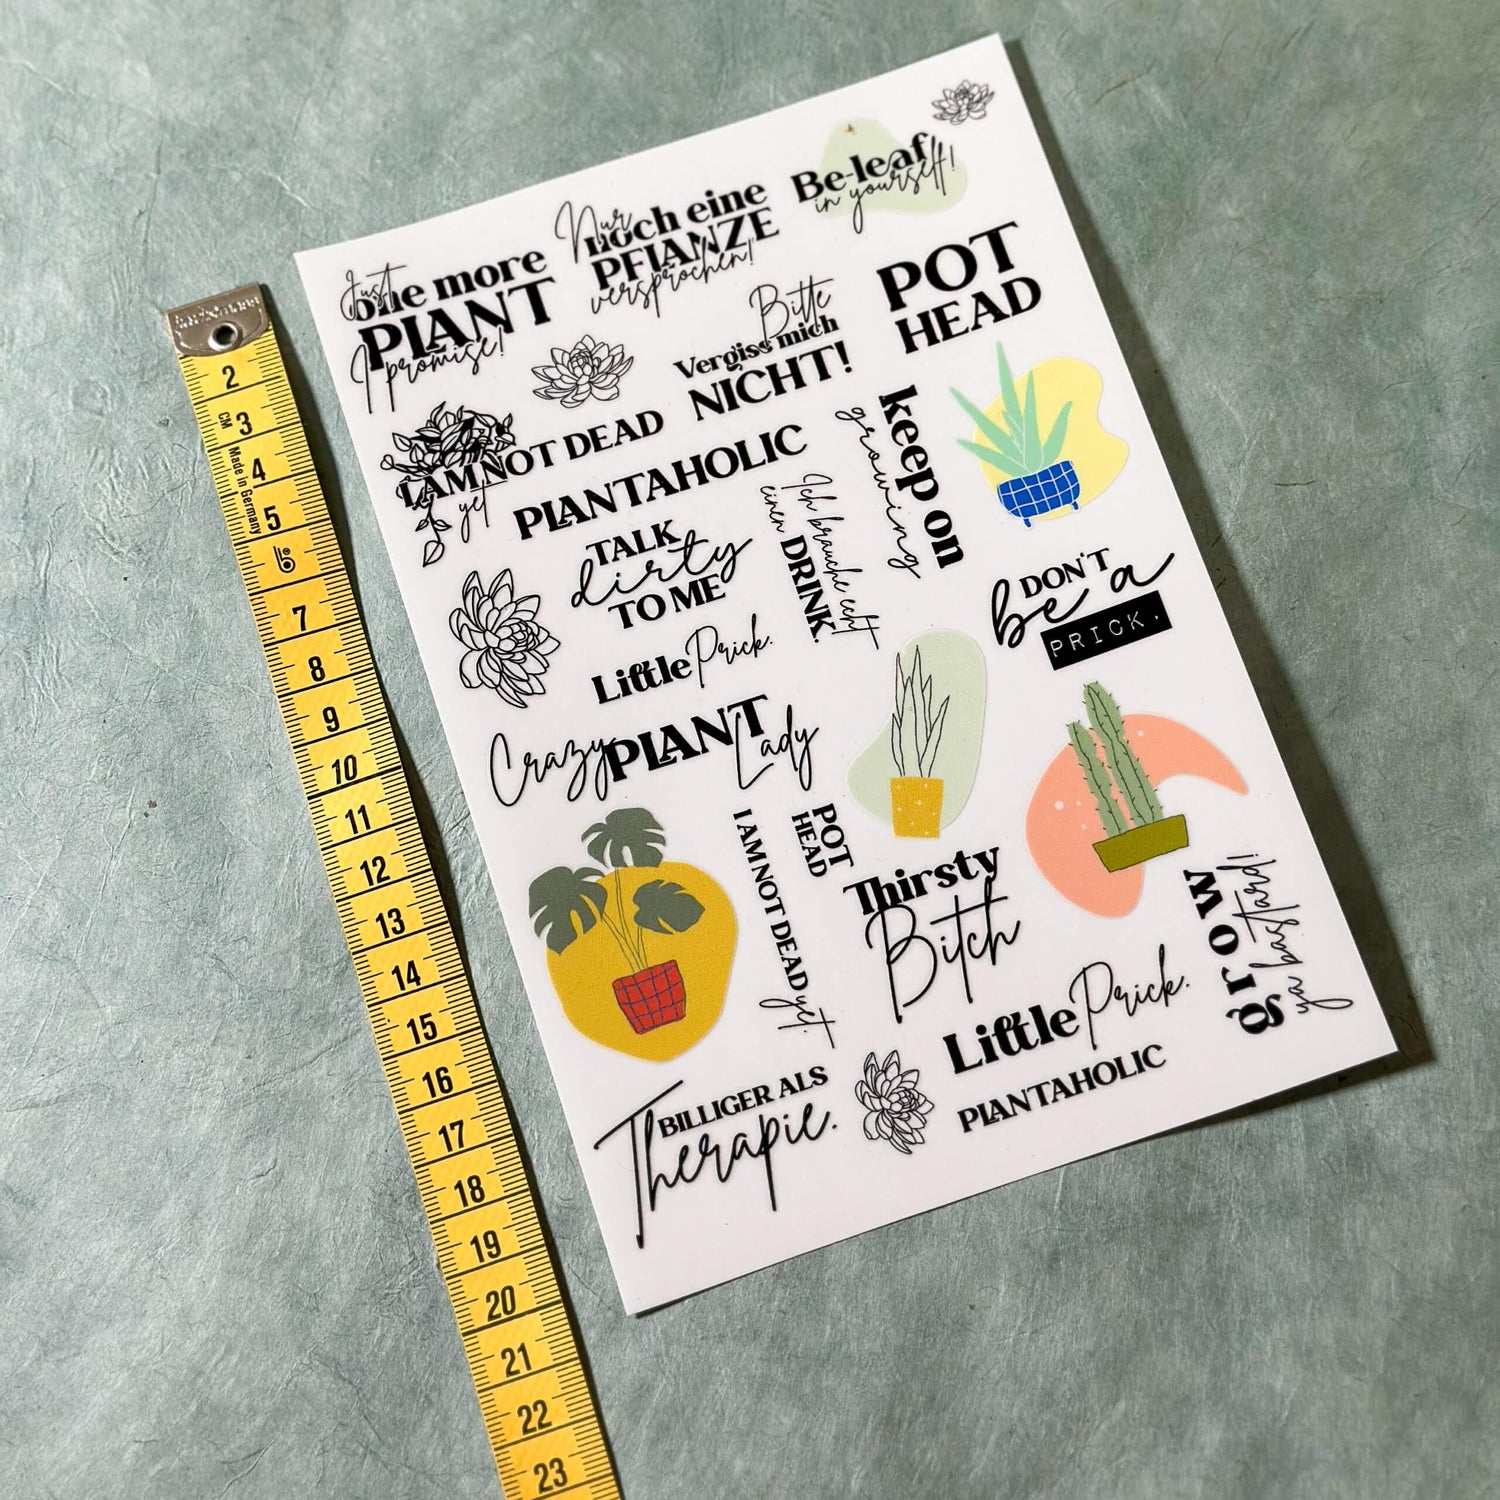 Just
one more
PLANT
I promise!
Nur
noch eine
PFLANZE
versprochen!
Be-leaf
in yourself!
Bitte
Vergiss mich
NICHT!
POT
HEAD
I AM NOT DEAD
yet
PLANTAHOLIC
keep on
growing
TALK
dirty
TO ME
Ich brauche echt
einen DRINK.
DON'T
be a
PRICK.
Little Prick.
Crazy PLANT Lady
I AM NOT DEAD yet.
POT
HEAD
Thirsty
Bitch
grow
ya bastard!
Little Prick.
PLANTAHOLIC
BILLIGER ALS
Therapie.
2
CM
3
Made in Germany
4
5
6
7
8
9
10
11
12
13
14
15
16
17
18
19
20
21
22
23